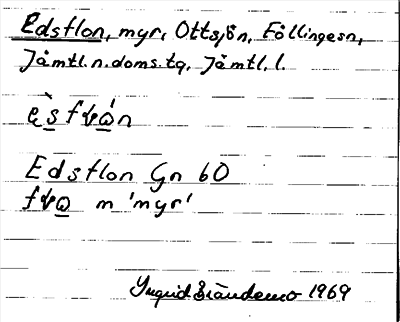 Edsflon, myr, Ottsjön, Föllingesn,
Jämtl. n. doms. tg, Jämtl. l.
Edsflon Gn 60
m 'myr'
Ingrid Brändemo 1969